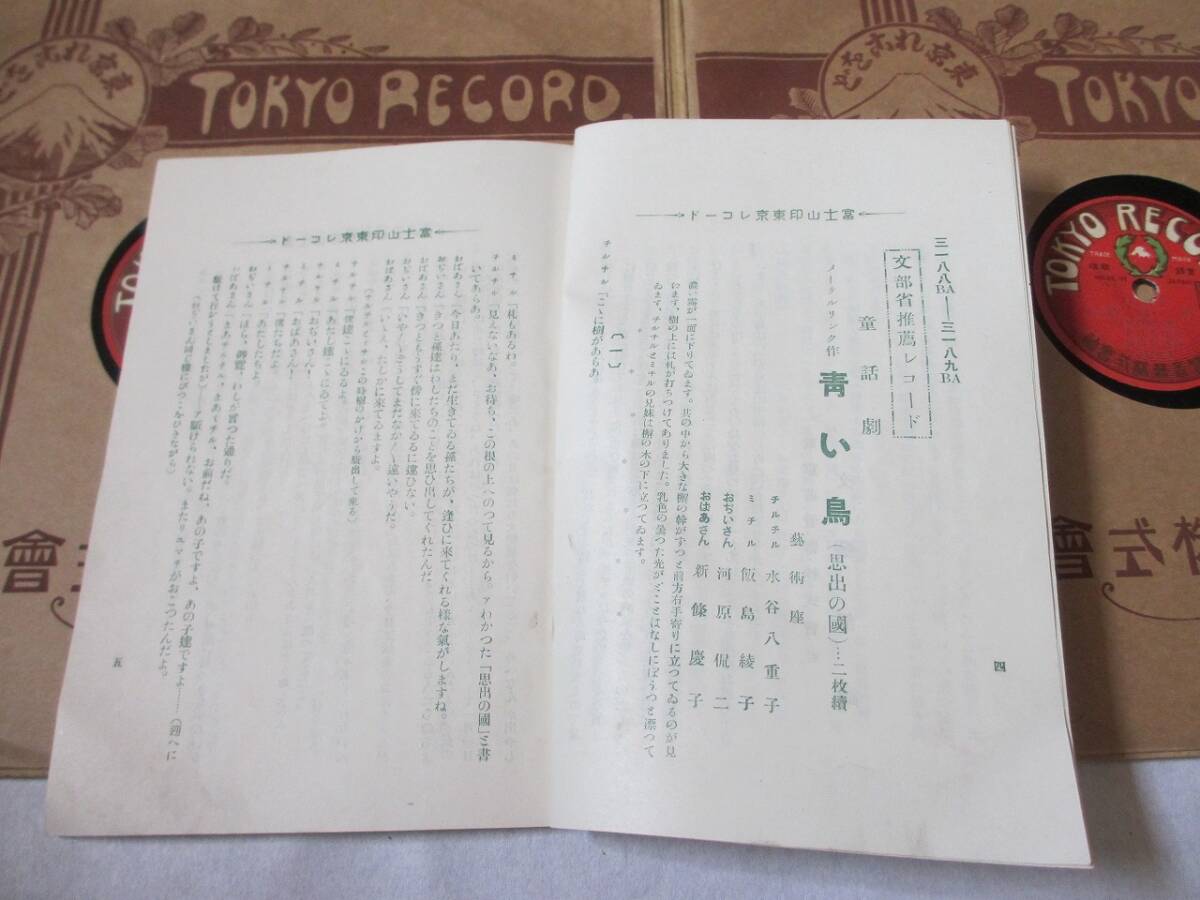 東京れこをど
TOKYO RECORD.
東京れこをど
TOKYO
TOKYO RECO
TRADE MARK
富士山印東京レコード
三一八八BA―三一八九BA
文部省推薦レコード
童話劇
メーテルリンク作 青い鳥(思出の國)…二枚續
藝術座
チルチル 水谷八重子
ミチル 飯島綾子
おぢいさん 河原侃二
おばあさん 新條慶子
濃い霧が一面に下りてゐます。其の中から大きな槲の幹がずつと前方右手寄りに立つてゐるのが見
ゐます。樹の上には札が打ちつけてありました。乳色の曇つた光がどことはなしにぼうつと漂つて
ゐます。チルチルとミチルの兄妹は槲の木の下に立つてゐます。
〔一〕
チルチル「こゝに樹があらあ。
四
富士山印東京レコード
ミチル「札もあるわ。
チルチル「見えないなあ、お待ち、この根の上へのつて見るから。アわかつた「思出の國」と書
いてあらあ。
おばあさん「今日あたり、まだ生きてゐる孫たちが、逢ひに來てくれる様な氣がしますね。
おぢいさん「きつと孫達はわしたちのことを思ひ出してくれたんだ。
おばあさん「きつともうすぐ傍に來てゐるに違ひない。
おぢいさん「いや
おばあさん「いゝえ、たしかに來てゐますよ。
(チルチルとミチルこの時樹のかげから駈出して來る)
チルチル「僕達こゝにゐるよ。
ミチル「あたし達こゝにゐてよ。
チルチル「おぢいさん!
ミチル「おばあさん!
チルチル「僕たちだよ。
ミチル「あたしたちよ。
おぢいさん「ほら、御覽、わしが言つた通りだ。
おばあさん「まあチルチル、まあミチル、お前だね、あの子ですよ、あの子達ですよ……(迎へに
駈けて行かうとしましたが)……ア駈けられない。またリユマチがおこつたんだよ。
五